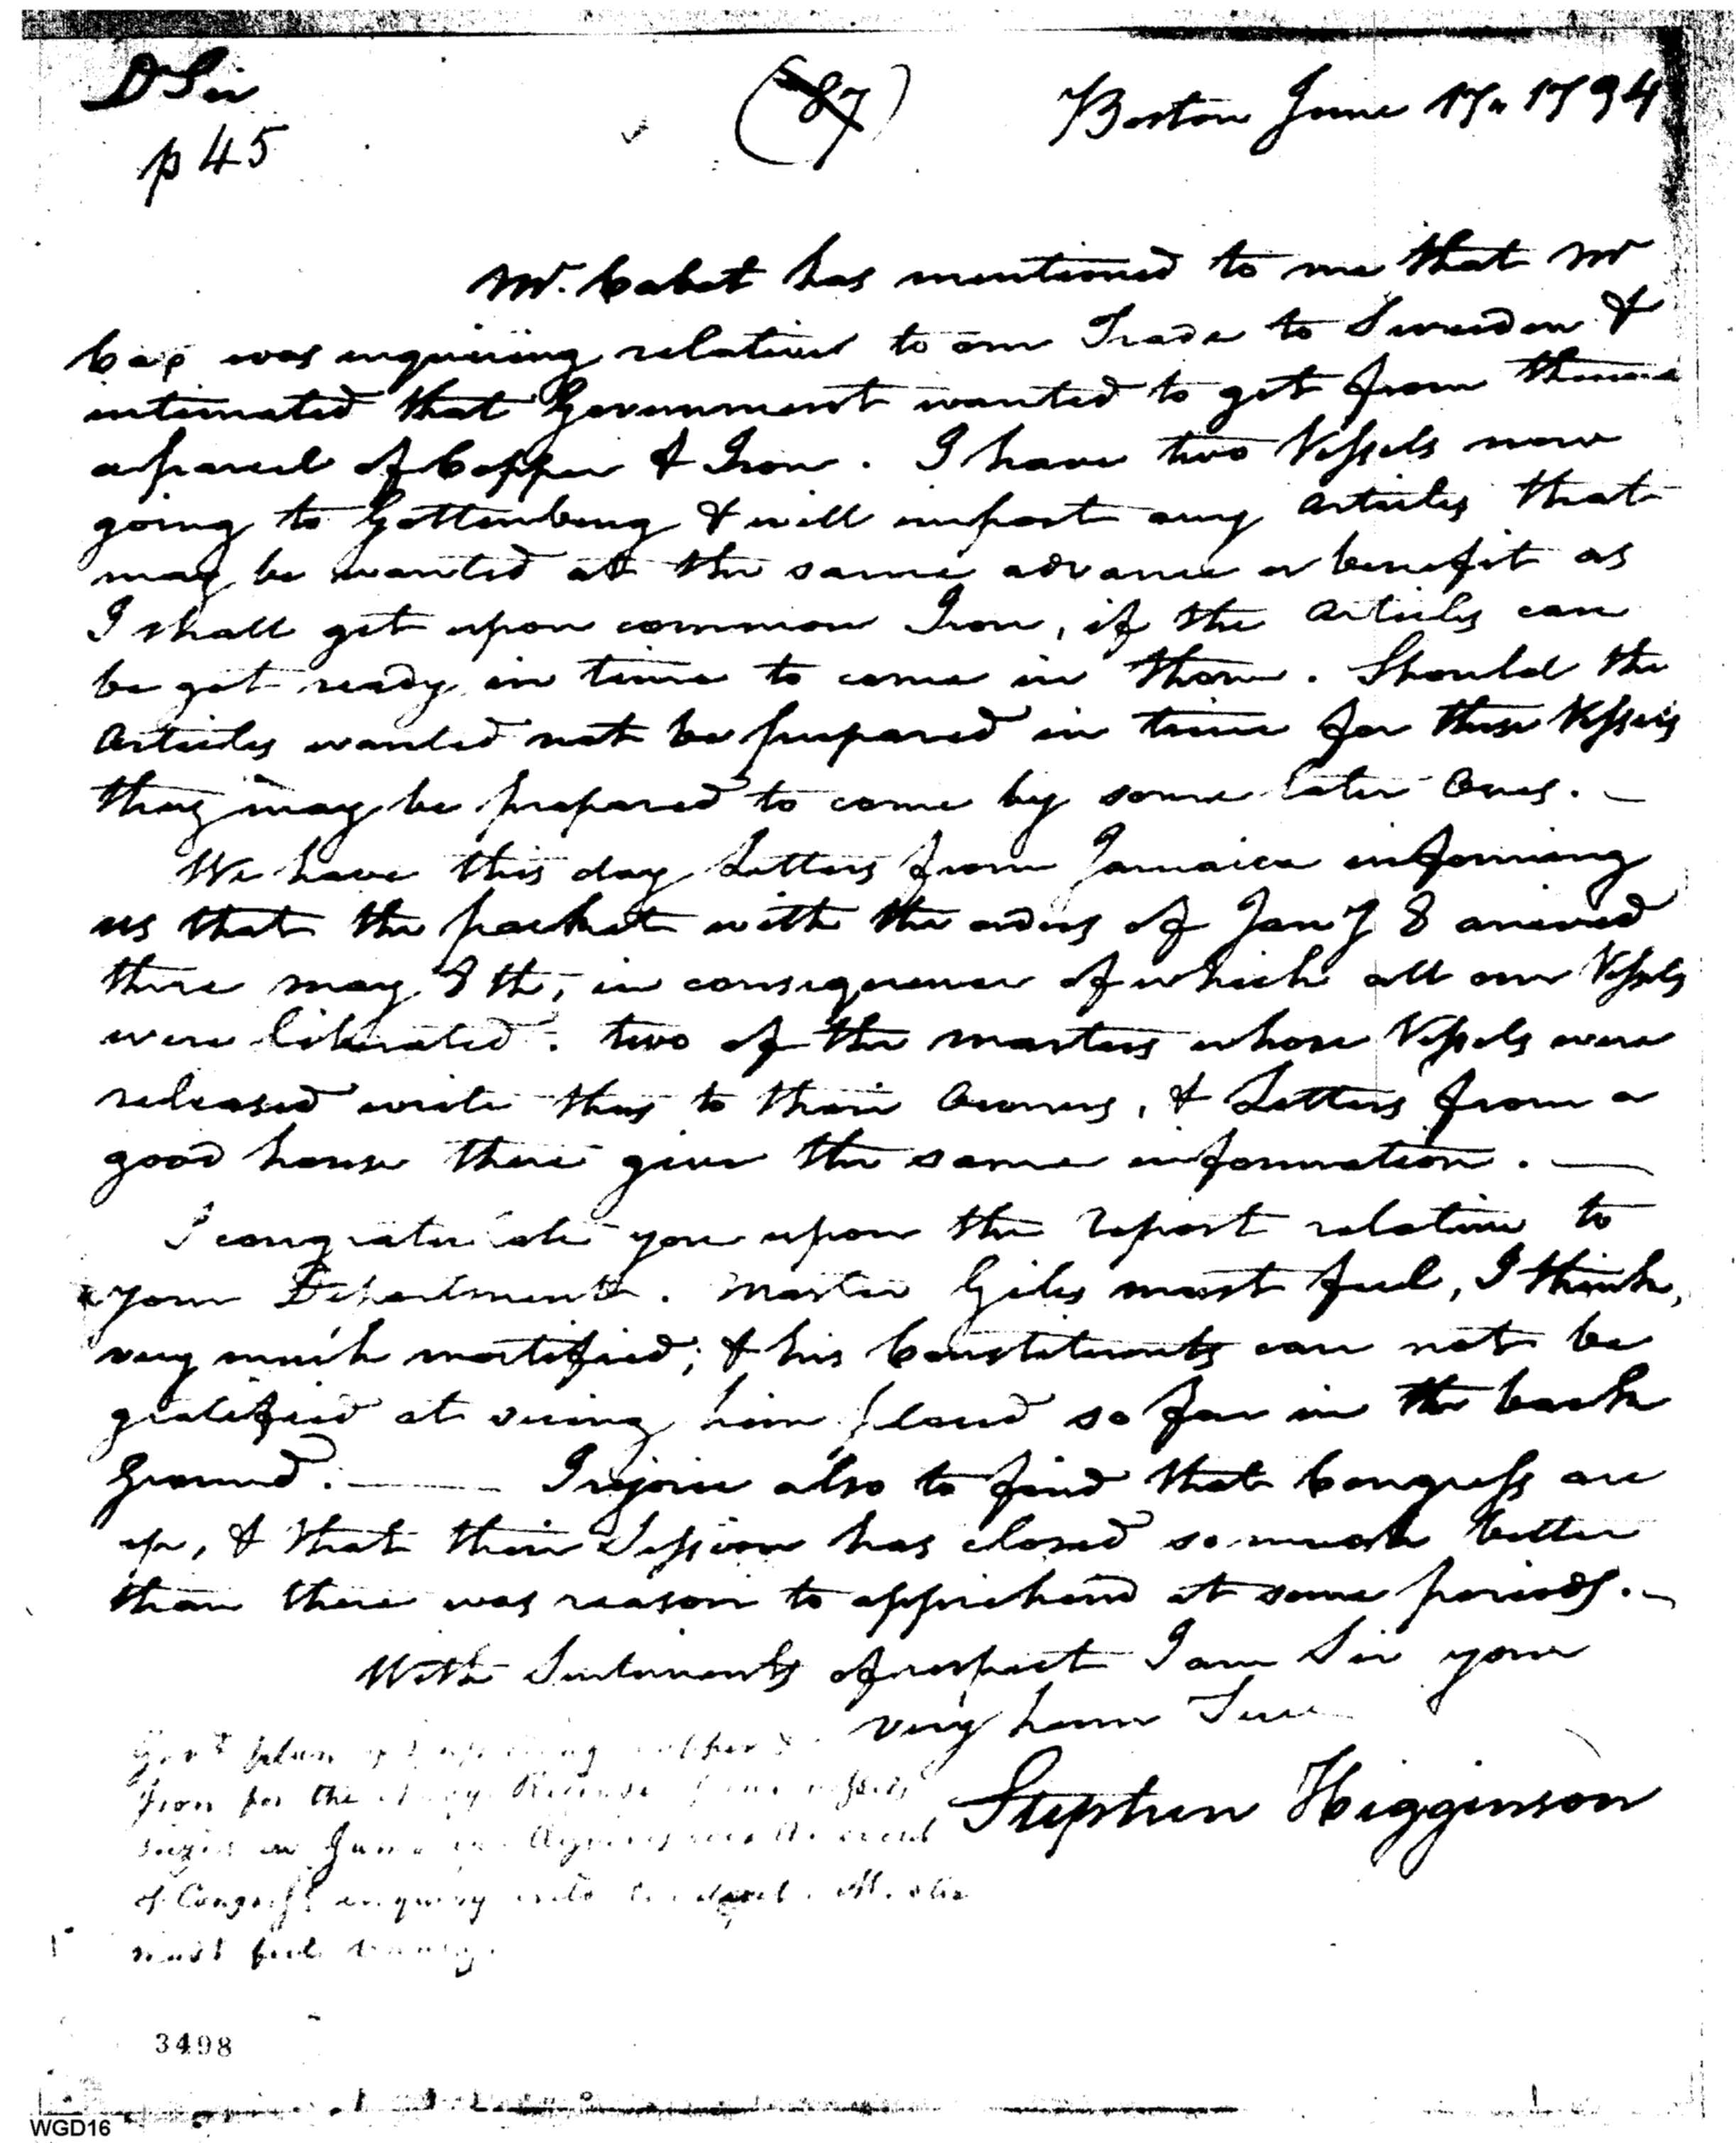 DSir
(87)
Boston June 17. 1794
p 45
Mr. Cabot has mentioned to me that Mr
Cox was enquiring relative to our Trade to Sweeden &
intimated that Government wanted to get from thence
a parcel of Copper & Iron. I have two Vessels now
going to Gottenburg & will import any Articles that
may be wanted at the same advance or benefit as
I shall get upon common Iron, if the Articles can
be got ready in time to come in them. Should the
Articles wanted not be prepared in time for these Vessels
they may be prepared to come by some later Ones. –
We have this day Letters from Jamaica informing
us that the packet with the orders of Jany 8 arrived
there may 8th, in consequence of which all our Vessels
were liberated. two of the masters whose Vessels were
released write thus to their Owners, & Letters from a
good house there give the same information. —
I congratulate you upon the report relative to
your Department. Master Giles must feel, I think,
very much mortified; & his Constituents can not be
gratified at seeing him placed so far in the back
Ground. — I rejoice also to find that Congress are
up, & that their Session has closed so much better
than there was reason to apprehend at some periods. –
With Sentiments of respect I am Sir your
very hum Serv
Stephen Higginson
Govt plan
Iron for the
in
of Congress enquiry into
must feel
3498
WGD16